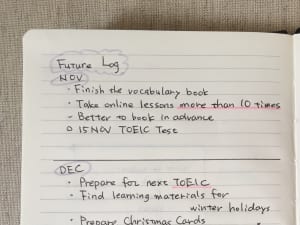 Future Log
NOV
・Finish the vocabulary book
・Take online lessons more than 10 times
– Better to book in advance
○ 15 NOV TOEIC Test
DEC
・Prepare for next TOEIC
・Find learning materials for
winter holidays
・Prepare Christmas Cards